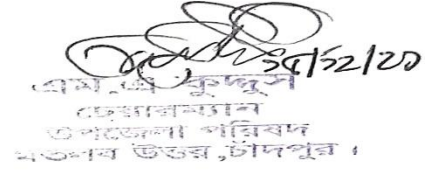 ২৪/১২/২০
এম, এ কুদ্দুস
চেয়ারম্যান
উপজেলা পরিষদ
মতলব উত্তর, চাঁদপুর।